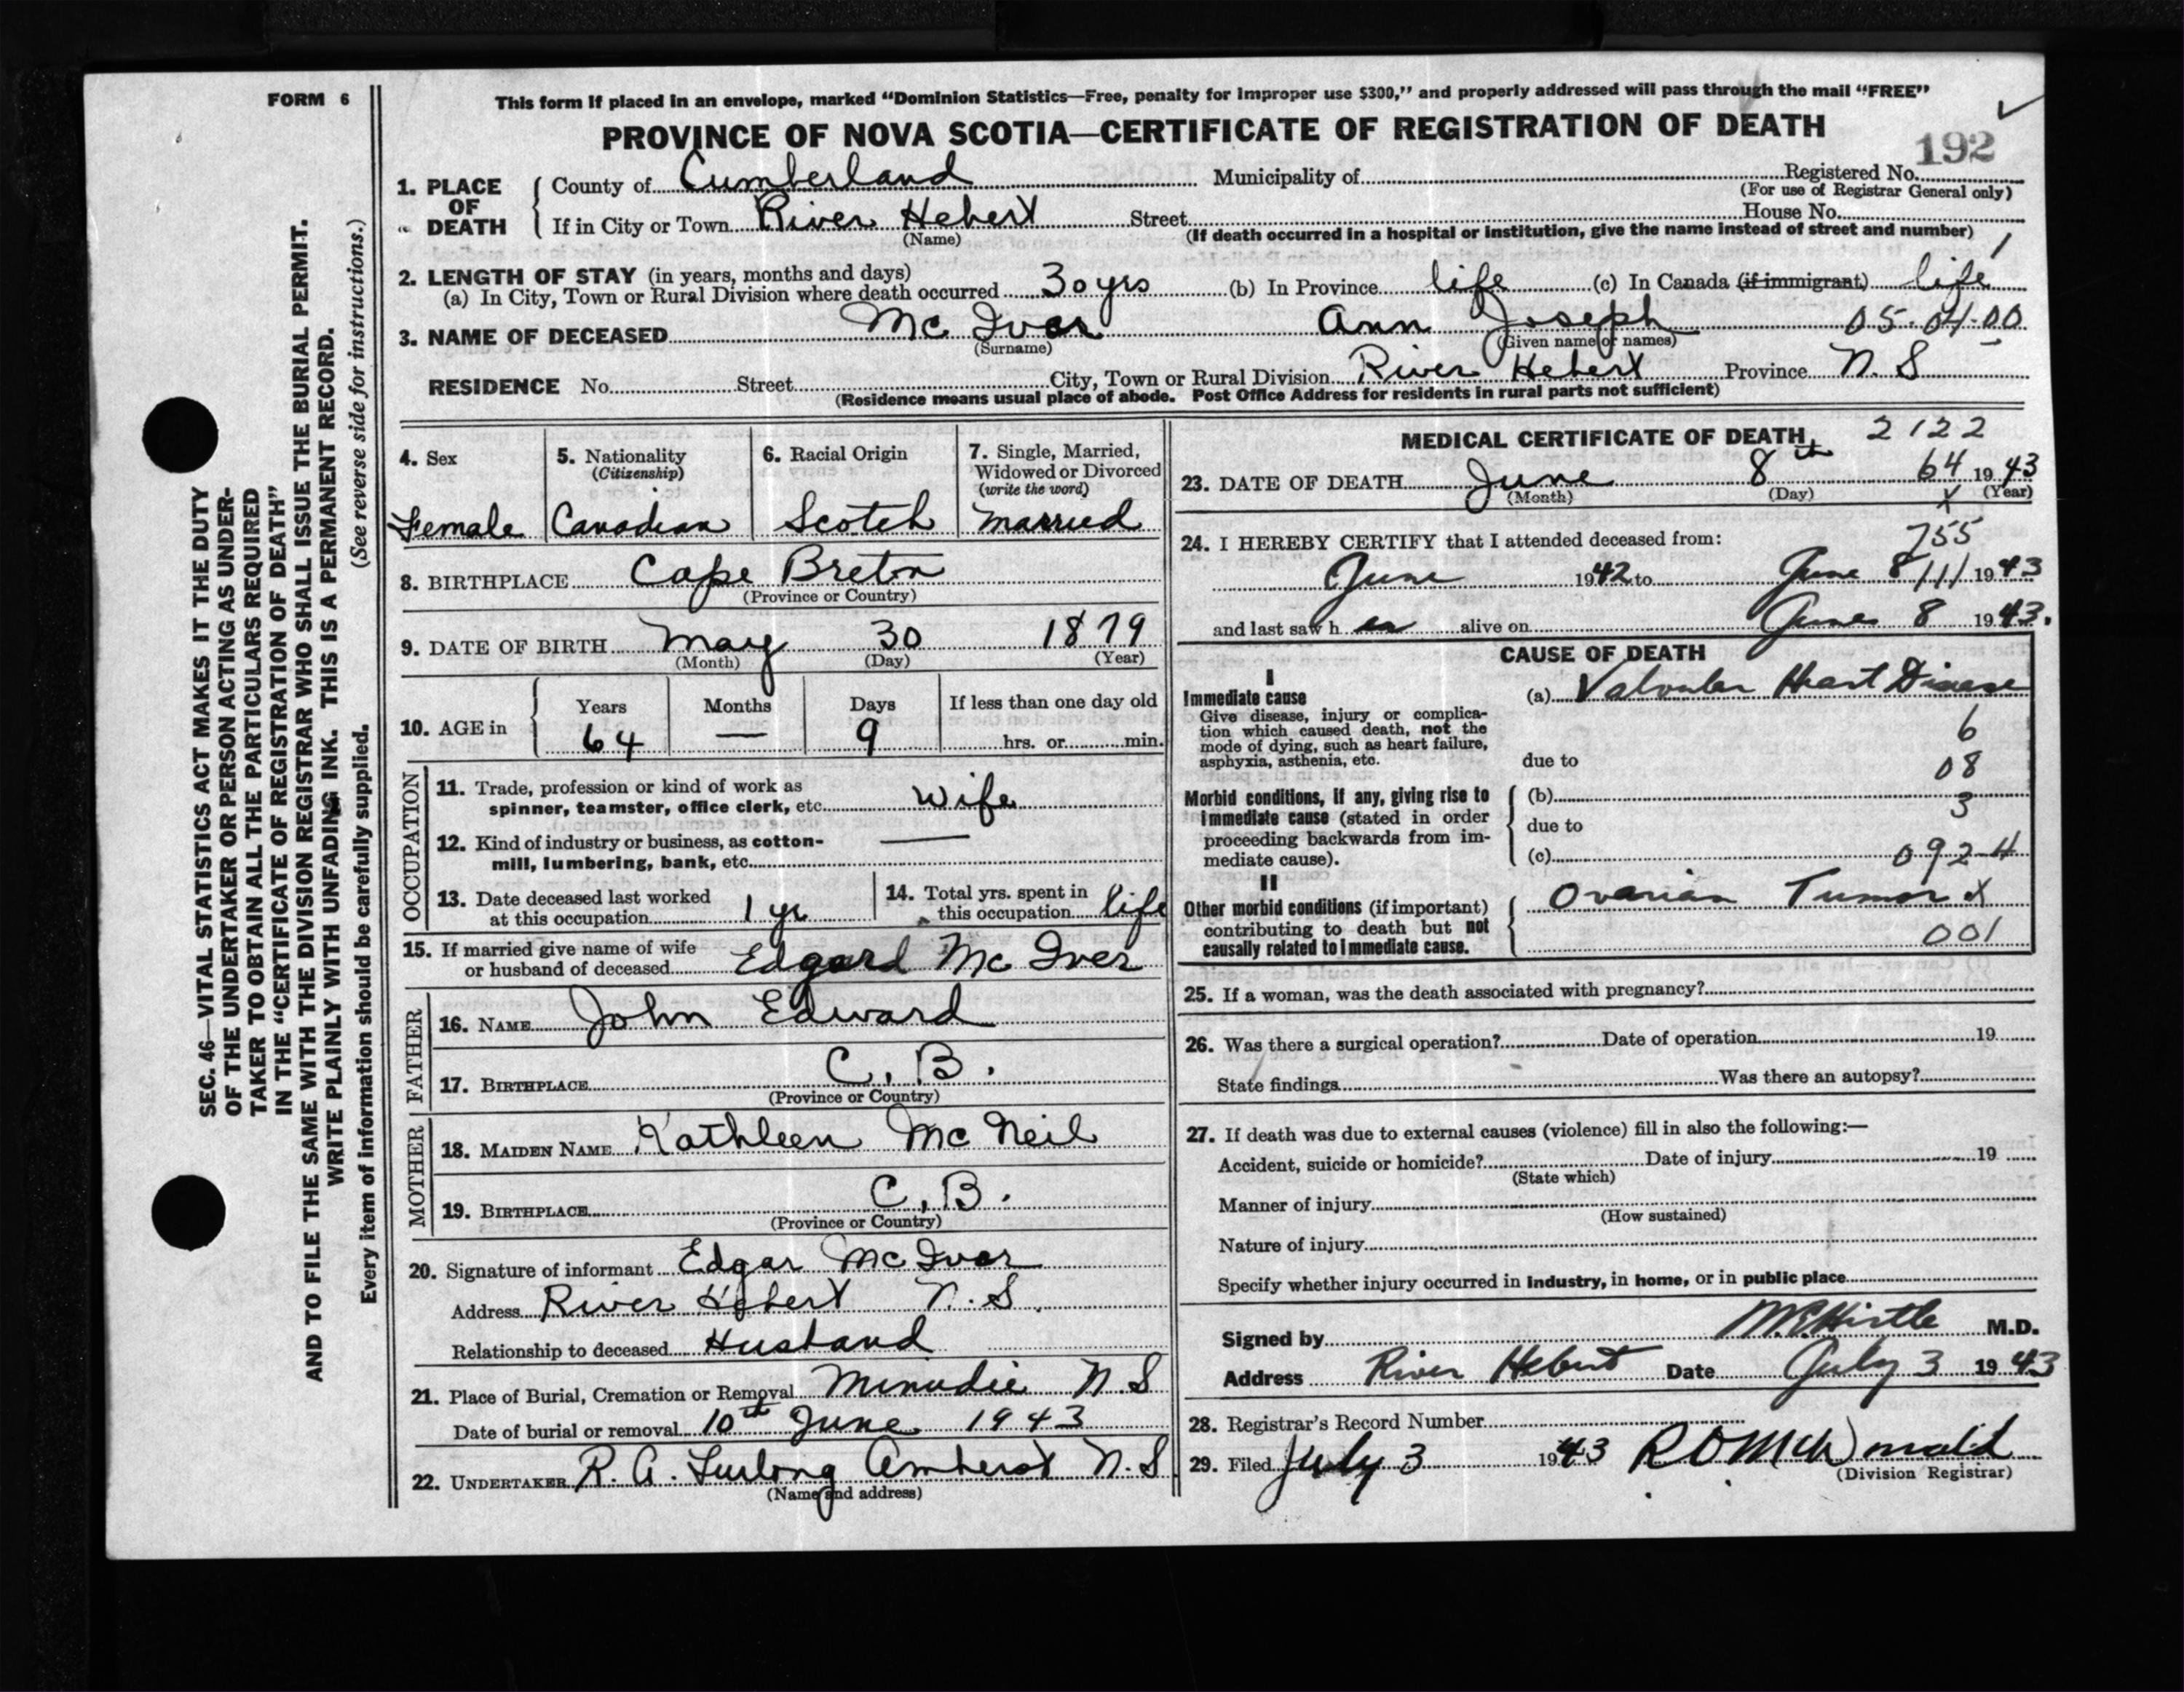 FORM 6
This form if placed in an envelope, marked “Dominion Statistics—Free, penalty for improper use $300,” and properly addressed will pass through the mail “FREE”
PROVINCE OF NOVA SCOTIA—CERTIFICATE OF REGISTRATION OF DEATH
192
1. PLACE OF DEATH
County of Cumberland Municipality of Registered No.
(For use of Registrar General only)
If in City or Town River Hebert Street House No.
(Name) (If death occurred in a hospital or institution, give the name instead of street and number)
2. LENGTH OF STAY (in years, months and days)
(a) In City, Town or Rural Division where death occurred 30 yrs (b) In Province life (c) In Canada (if immigrant) life
3. NAME OF DECEASED Mc Iver Ann Joseph 05.04.00
(Surname) (Given name or names)
RESIDENCE No. Street City, Town or Rural Division River Hebert Province N. S
(Residence means usual place of abode. Post Office Address for residents in rural parts not sufficient)
4. Sex
Female
5. Nationality
(Citizenship)
Canadian
6. Racial Origin
Scotch
7. Single, Married,
Widowed or Divorced
(write the word)
Married
8. BIRTHPLACE Cape Breton
(Province or Country)
9. DATE OF BIRTH May 30 1879
(Month) (Day) (Year)
10. AGE in
Years Months Days If less than one day old
64 — 9 hrs. or min.
OCCUPATION
11. Trade, profession or kind of work as
spinner, teamster, office clerk, etc. Wife
12. Kind of industry or business, as cotton-
mill, lumbering, bank, etc. —
13. Date deceased last worked
at this occupation 1 yr
14. Total yrs. spent in
this occupation life
15. If married give name of wife
or husband of deceased Edgard Mc Iver
FATHER
16. NAME John Edward
17. BIRTHPLACE C. B.
(Province or Country)
MOTHER
18. MAIDEN NAME Kathleen Mc Neil
19. BIRTHPLACE C. B.
(Province or Country)
20. Signature of informant Edgar McIver
Address River Hebert N. S.
Relationship to deceased Husband
21. Place of Burial, Cremation or Removal Minudie N S
Date of burial or removal 10th June 1943
22. UNDERTAKER R. A. Furlong Amherst N. S
(Name and address)
MEDICAL CERTIFICATE OF DEATH 2122
23. DATE OF DEATH June 8th 64 1943
(Month) (Day) (Year)
755
24. I HEREBY CERTIFY that I attended deceased from:
June 1942 to June 8/11/ 1943
and last saw her alive on June 8 1943.
CAUSE OF DEATH
I
Immediate cause
Give disease, injury or complica-
tion which caused death, not the
mode of dying, such as heart failure,
asphyxia, asthenia, etc.
(a) Valvular Heart Disease
6
due to 08
Morbid conditions, if any, giving rise to
immediate cause (stated in order
proceeding backwards from im-
mediate cause).
(b)
3
due to
(c) 092-4
II
Other morbid conditions (if important)
contributing to death but not
causally related to immediate cause.
Ovarian Tumor x
001
25. If a woman, was the death associated with pregnancy?
26. Was there a surgical operation? Date of operation 19
State findings Was there an autopsy?
27. If death was due to external causes (violence) fill in also the following:—
Accident, suicide or homicide? Date of injury 19
(State which)
Manner of injury
(How sustained)
Nature of injury
Specify whether injury occurred in industry, in home, or in public place
Signed by Hirtle M.D.
Address River Hebert Date July 3 1943
28. Registrar's Record Number
29. Filed July 3 1943
(Division Registrar)
SEC. 46—VITAL STATISTICS ACT MAKES IT THE DUTY
OF THE UNDERTAKER OR PERSON ACTING AS UNDER-
TAKER TO OBTAIN ALL THE PARTICULARS REQUIRED
IN THE “CERTIFICATE OF REGISTRATION OF DEATH”
AND TO FILE THE SAME WITH THE DIVISION REGISTRAR WHO SHALL ISSUE THE BURIAL PERMIT.
WRITE PLAINLY WITH UNFADING INK. THIS IS A PERMANENT RECORD.
Every item of information should be carefully supplied. (See reverse side for instructions.)